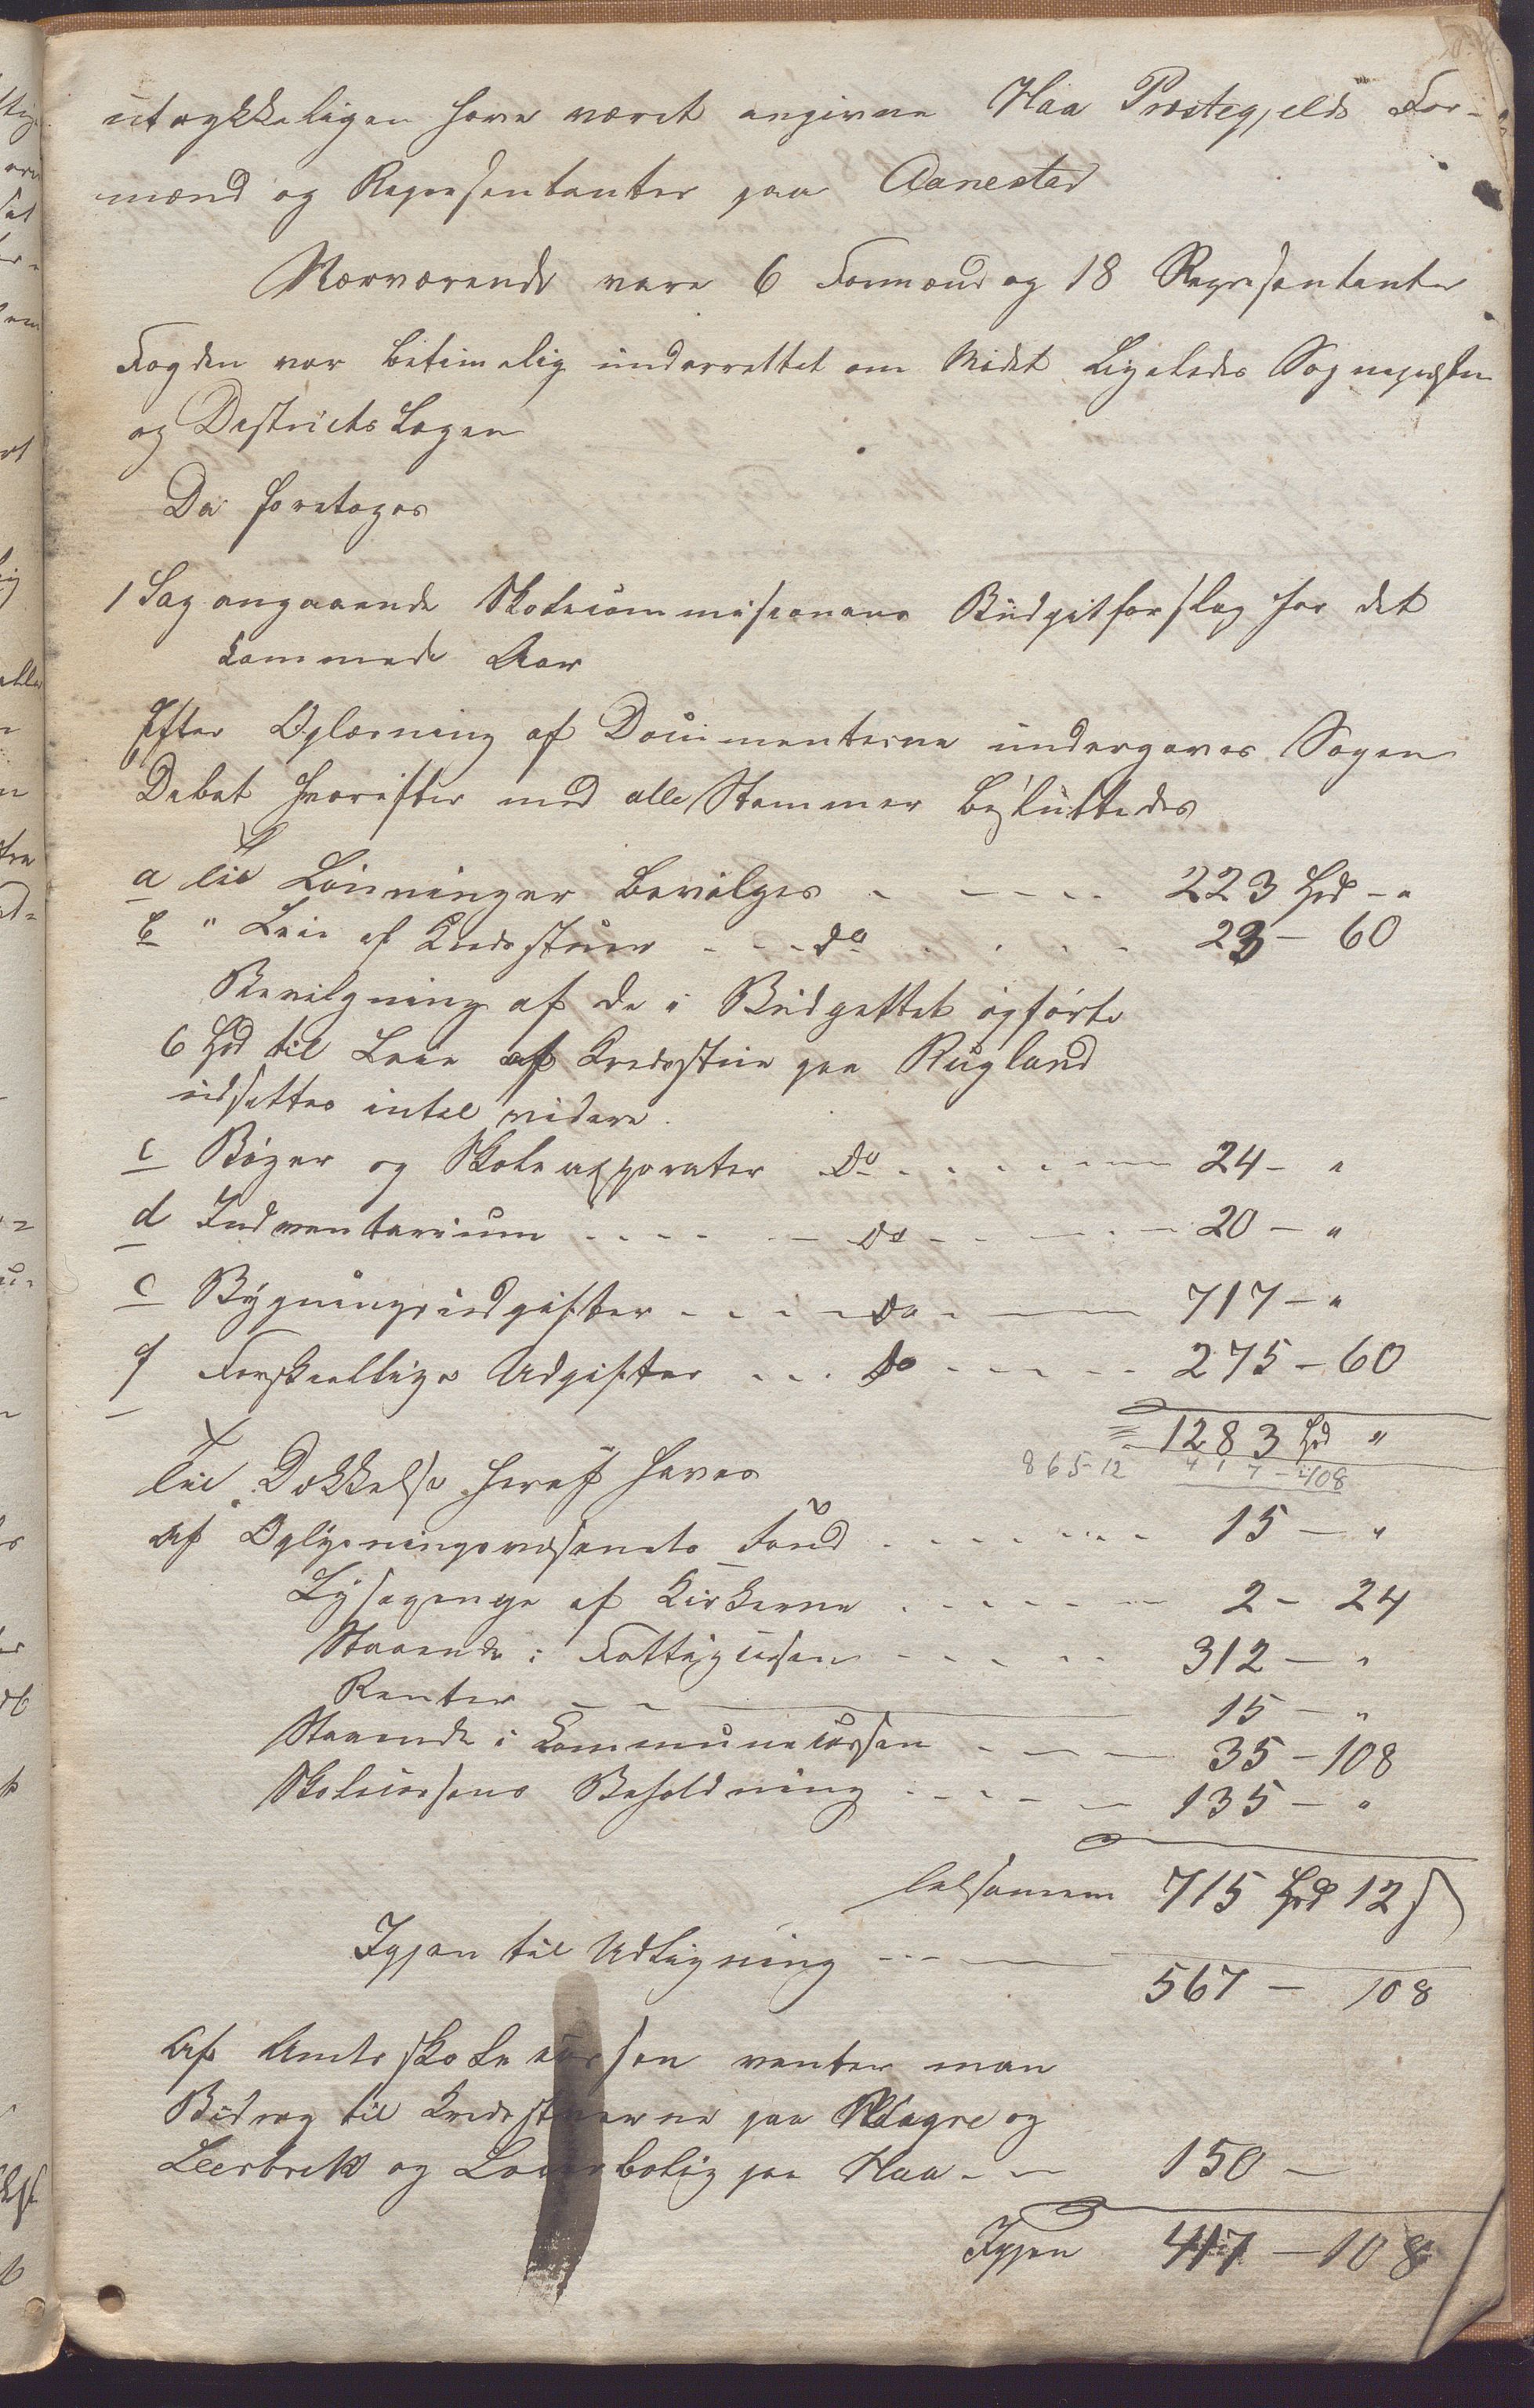 udtrykkeligen have været angivne Haa Præstegjelds For-
mænd og Repræsentanter paa Aanestad
Nærværende vare 6 Formænd og 18 Repræsentanter
Fogden var betimelig underrettet om Mødet Ligeledes Sognepræsten
og Districts Lægen
Da foretoges
1 Sag angaaende Skolecommisionens Budgetforslag for det
kommende Aar
Efter Oplæsning af Documenterne undergaves Sagen
Debat hvorefter med alle Stemmer besluttedes
a til Lønninger bevilges - - - - 223 Spd - "
b " Leie af Kredsstuer - - - do - - - - 23 - 60
Bevilgning af de i Budgettet opførte
6 Spd til Leie af Kredsstue paa Rugland
udsettes intil videre.
c Bøger og Skoleapparater do - - - - 24 - "
d Indventarium - - - - do - - - - 20 - "
e Bygningsudgifter - - - - do - - 717 - "
f Forskjellige Udgifter - - - do - - - - 275 - 60
1283 Spd "
865-12 417-108
Til Dækkelse heraf haves
Af Oplysningsvæsenets Fond - - - - - 15 - "
Lysepenge af Kirkerne - - - - - 2 - 24
Staaende i Fattigcassen - - - - - 312 - "
Renter - - 15 - "
Staaende i Kommunecassen - - - 35 - 108
Skolecassens Beholdning - - - - - 135 - "
tilsamen 715 Spd 12 s
Igjen til Udligning - - - 567 - 108
Af Amtsskolecassen venter man
Bidrag til Kredsstuerne paa Madgre og
Leerbrek og Lærerbolig paa Haa - - 150 -
Igjen 417 - 108